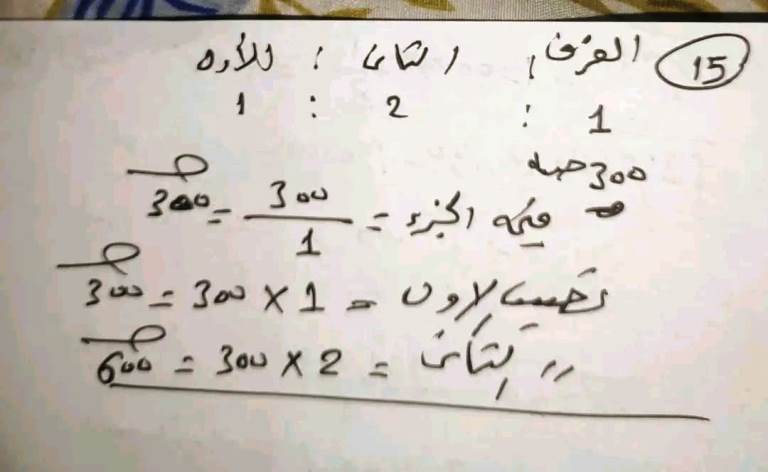 15 الفرق : الثانى : للأول
1 : 2 : 1
300 جنيه
قيمة الجزء = 300 / 1 = 300 جـ
نصيب الاول = 1 × 300 = 300 جـ
〃 الثانى = 2 × 300 = 600 جـ